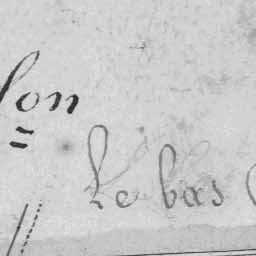 son
Le bas